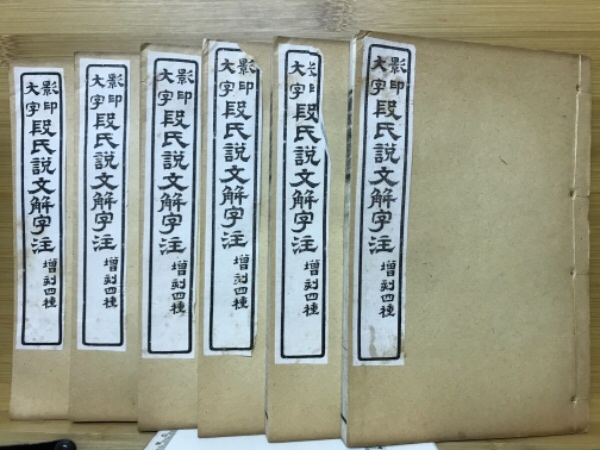 影印
大字
段氏說文解字注
增刻四種
影印
大字
段氏說文解字注
增刻四種
影印
大字
段氏說文解字注
增刻四種
影印
大字
段氏說文解字注
增刻四種
大字
段氏說文解字注
增刻四種
影印
大字
段氏說文解字注
增刻四種